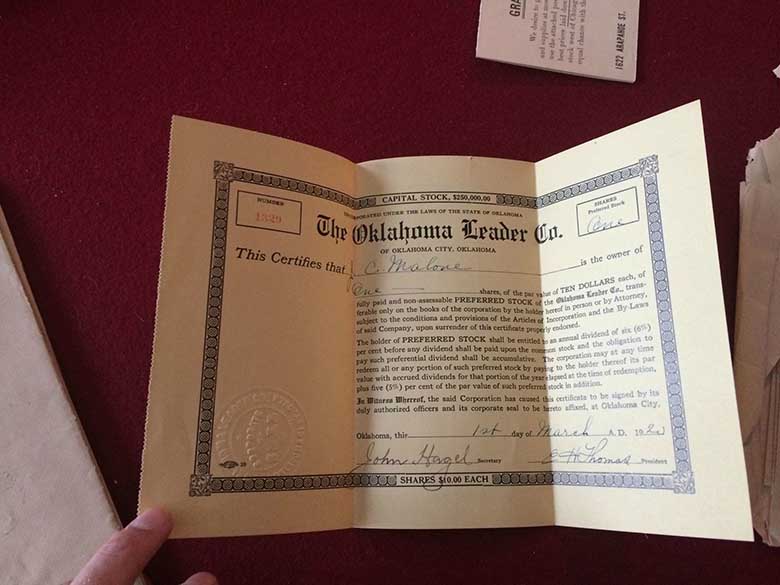 GRA
We desire to p
and supplies at mo
use the attached po
best prices laid dow
stock west of Chicag
equal chance with the
1622 ARAPAHOE ST.
CAPITAL STOCK, $250,000.00
NUMBER
1329
SHARES
Preferred Stock
One
INCORPORATED UNDER THE LAWS OF THE STATE OF OKLAHOMA
The Oklahoma Leader Co.
OF OKLAHOMA CITY, OKLAHOMA
This Certifies that C. Malone is the owner of
One shares, of the par value of TEN DOLLARS each, of
fully paid and non-assessable PREFERRED STOCK of the Oklahoma Leader Co., trans-
ferable only on the books of the corporation by the holder hereof in person or by Attorney,
subject to the conditions and provisions of the Articles of Incorporation and the By-Laws
of said Company, upon surrender of this certificate properly endorsed.
The holder of PREFERRED STOCK shall be entitled to an annual dividend of six (6%)
per cent before any dividend shall be paid upon the common stock and the obligation to
pay such preferential dividend shall be accumulative. The corporation may at any time
redeem all or any portion of such preferred stock by paying to the holder thereof its par
value with accrued dividends for that portion of the year elapsed at the time of redemption,
plus five (5%) per cent of the par value of such preferred stock in addition.
In Witness Whereof, the said Corporation has caused this certificate to be signed by its
duly authorized officers and its corporate seal to be hereto affixed, at Oklahoma City,
Oklahoma, this 1st day of March A.D. 192
John Hagel Secretary E H Thomas President
SHARES $10.00 EACH